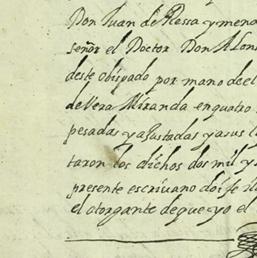 Don Juan de Rossa y mena
señor el Doctor Don Alons
deste obispado por mano de el
de Vera Miranda en quatro
pesadas y ajustadas y a sus
taron los dichos dos mil y
presente escriuano doi fe
el otorgante de que yo el